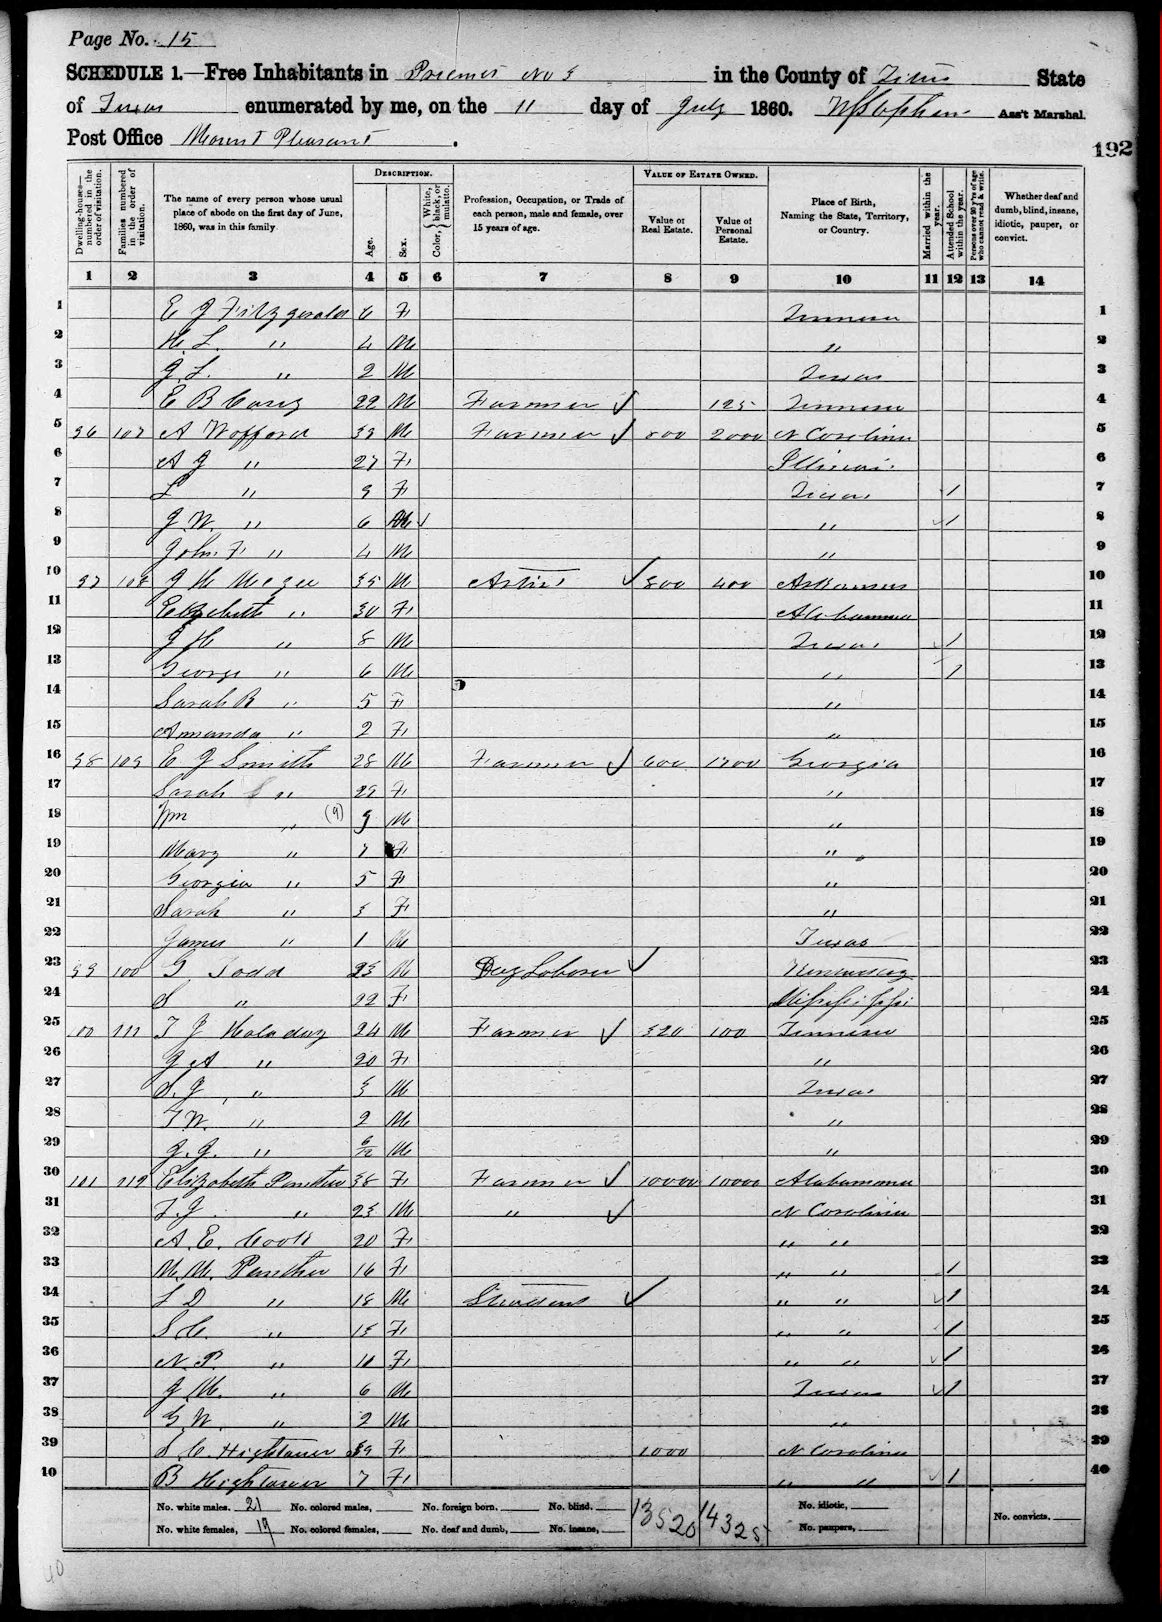 Page No. 15
SCHEDULE 1.—Free Inhabitants in Precinct No 3 in the County of Titus State
of Texas enumerated by me, on the 11 day of July 1860. Ass't Marshal
Post Office Mount Pleasant.
192
Dwelling-houses—numbered in the order of visitation.
Families numbered in the order of visitation.
The name of every person whose usual place of abode on the first day of June, 1860, was in this family.
DESCRIPTION.
Age.
Sex.
Color, White, black, or mulatto.
Profession, Occupation, or Trade of each person, male and female, over 15 years of age.
VALUE OF ESTATE OWNED.
Value of Real Estate.
Value of Personal Estate.
Place of Birth, Naming the State, Territory, or Country.
Married within the year.
Attended School within the year.
Persons over 20 y'rs of age who cannot read & write.
Whether deaf and dumb, blind, insane, idiotic, pauper, or convict.
1 2 3 4 5 6 7 8 9 10 11 12 13 14
1 E J Fitzgerald 6 F Tennessee 1
2 H. L. " 4 M " 2
3 J. L. " 2 M Texas 3
4 E B 22 M Farmer ✓ 125 Tennessee 4
5 96 107 A Wofford 39 M Farmer ✓ 800 2000 N Carolina 5
6 A J " 27 F Illinois 6
7 L " 9 F Texas / 7
8 J. W. " 6 M ✓ " ✓ / 8
9 John F " 4 M " 9
10 97 108 J H McGee 35 M Artist ✓ 800 400 Arkansas 10
11 Elizabeth " 30 F Alabama 11
12 J H " 8 M Texas / 12
13 George " 6 M " / 13
14 Sarah B " 5 F " 14
15 Amanda " 2 F " 15
16 98 109 E J Smith 28 M Farmer ✓ 600 1300 Georgia 16
17 Sarah " 29 F " 17
18 Wm " (9) 9 M " 18
19 Mary " 7 F " 19
20 Georgia " 5 F " 20
21 Sarah " 3 F " 21
22 James " 1 M Texas 22
23 99 100 G Todd 23 M Day Laborer ✓ Kentucky 23
24 S " 22 F Mississippi 24
25 100 111 T J Holaday 24 M Farmer ✓ 320 100 Tennessee 25
26 J A " 20 F " 26
27 S. J. " 3 M Texas 27
28 T W. " 2 M " 28
29 J. J. " 6/12 M " 29
30 101 112 Elizabeth Panther 38 F Farmer ✓ 10000 10000 Alabama 30
31 T. J. " 23 M " ✓ N Carolina 31
32 A. E. Cook 20 F " " 32
33 M. M. Panther 16 F " " / 33
34 L D " 18 M Student ✓ " " / 34
35 S C. " 13 F " " / 35
36 N. P. " 10 F " " ✓ / 36
37 J M. " 6 M Texas ✓ / 37
38 G W. " 2 M " 38
39 S. C. Hightower 39 F 1000 N Carolina 39
40 B Hightower 7 F " " ✓ / 40
No. white males, 21 No. colored males, No. foreign born, No. blind, 13520 14325 No. idiotic,
No. white females, 19 No. colored females, No. deaf and dumb, No. insane, No. paupers, No. convicts,
40